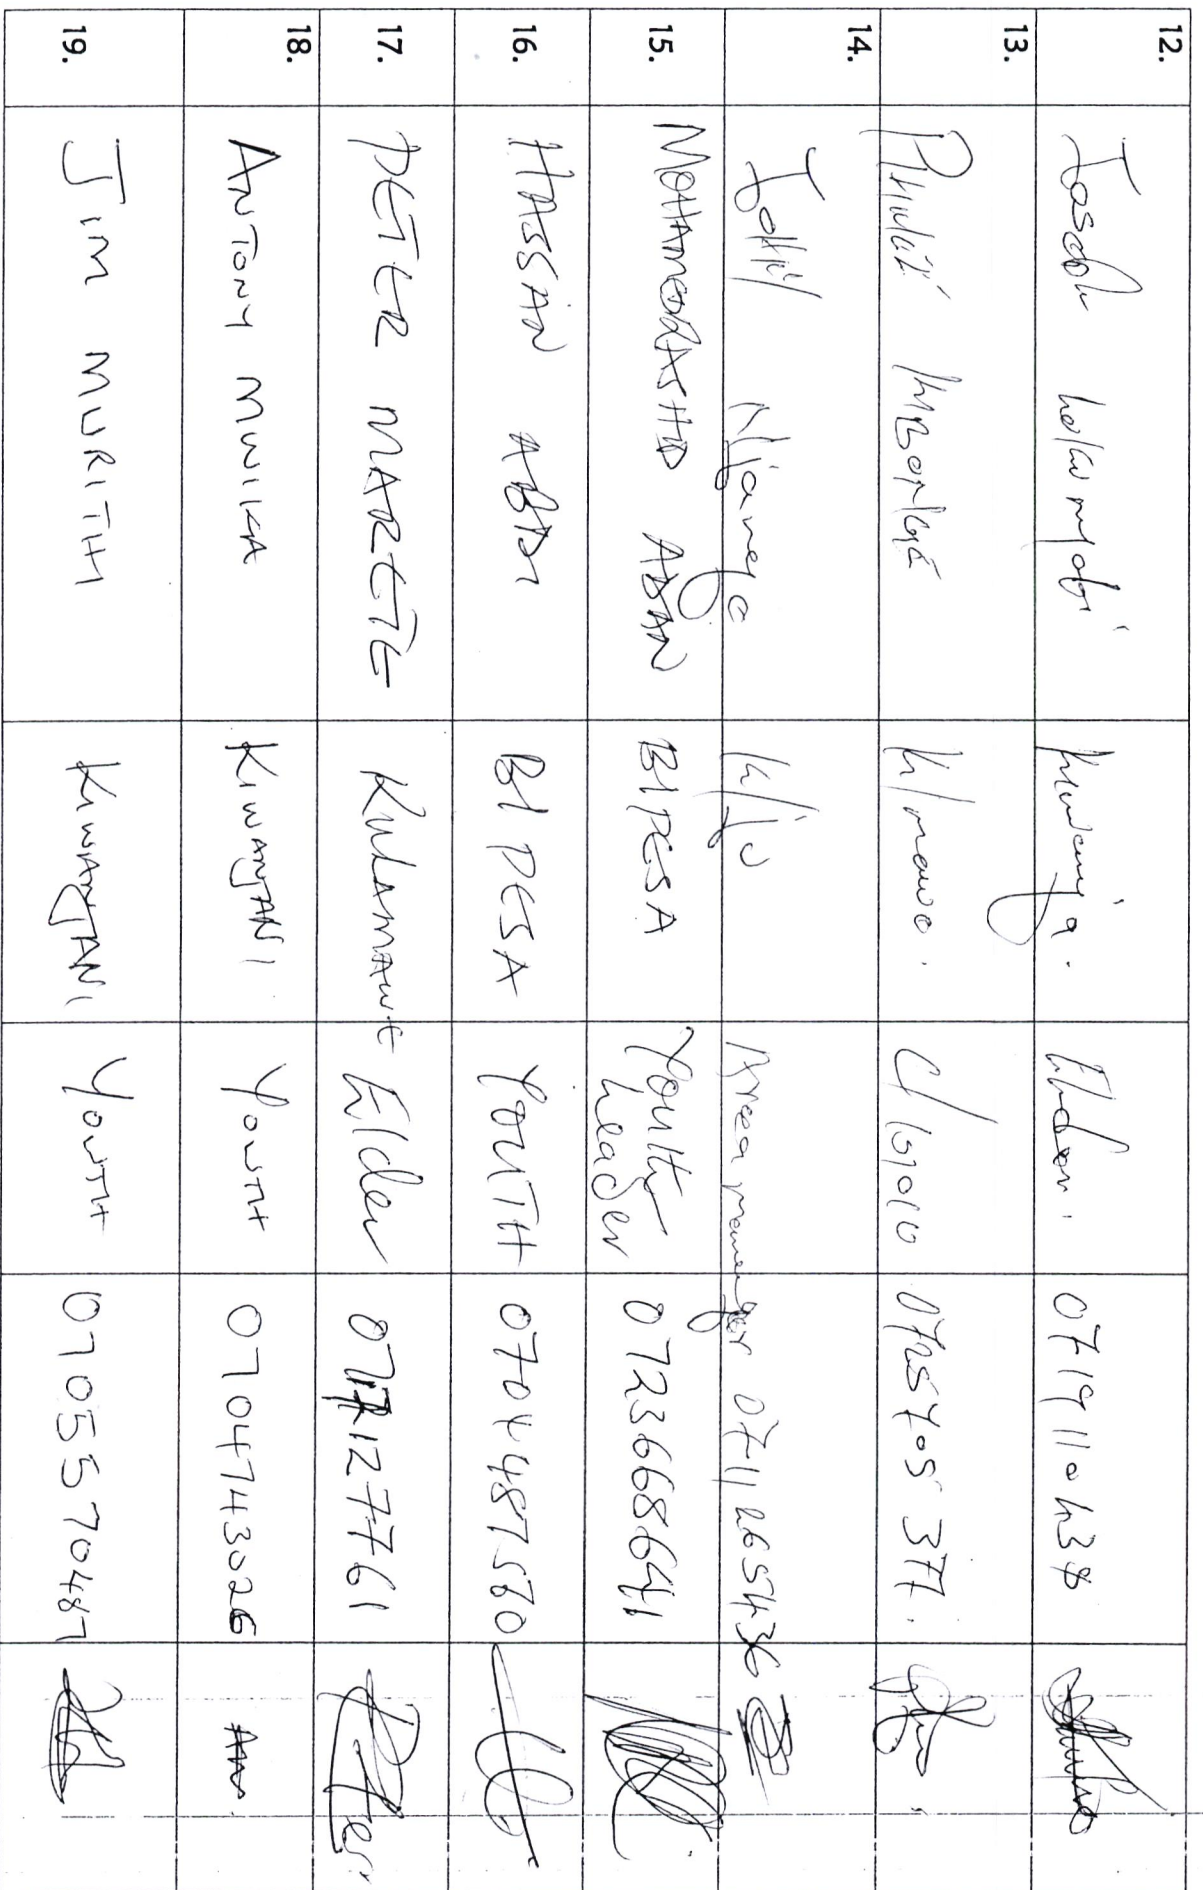 12. Elder. 0719110438
13. K/mawe. 0725705377.
14. John Njoroge K/ju Area manager 0711265436
15. MOHAMED RASHID ADAN BIPESA Youth
Leader 0723668641
16. HASSAN ABDI BIPESA YOUTH 0704487580
17. PETER MARETE KULAMAWE Elder 077127761
18. ANTONY MWIKA KIWANJANI YOUTH 0704743026
19. JIM MURITHI KIWANJANI YOUTH 0705570487